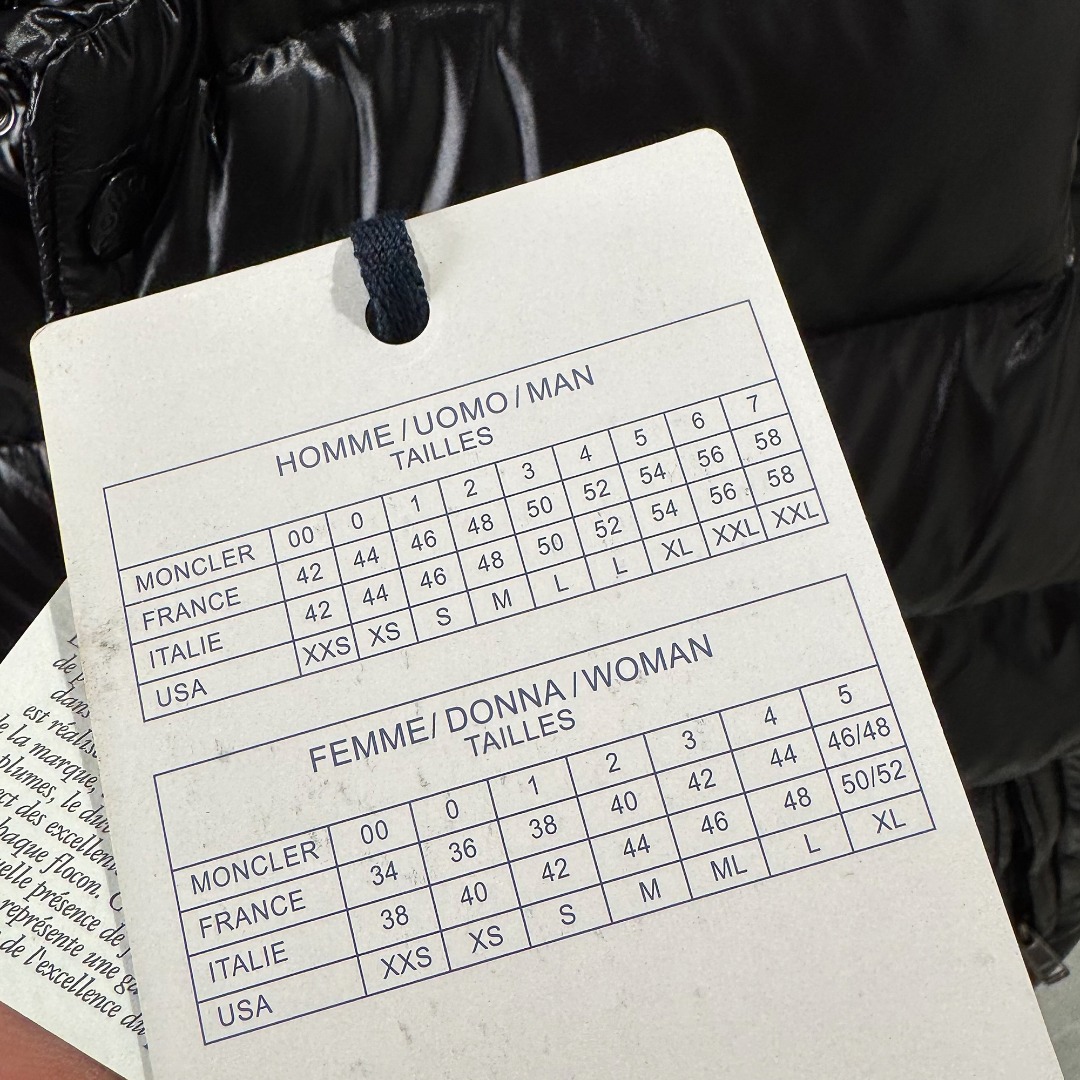 HOMME / UOMO / MAN
TAILLES
MONCLER 00 0 1 2 3 4 5 6 7
FRANCE 42 44 46 48 50 52 54 56 58
ITALIE 42 44 46 48 50 52 54 56 58
USA XXS XS S M L L XL XXL XXL
FEMME/ DONNA / WOMAN
TAILLES
MONCLER 00 0 1 2 3 4 5
FRANCE 34 36 38 40 42 44 46/48
ITALIE 38 40 42 44 46 48 50/52
USA XXS XS S M ML L XL
dans
est réalis
la marque,
plumes, le du
des excellen
flocon.
présence de
représente une
de l'excellence du